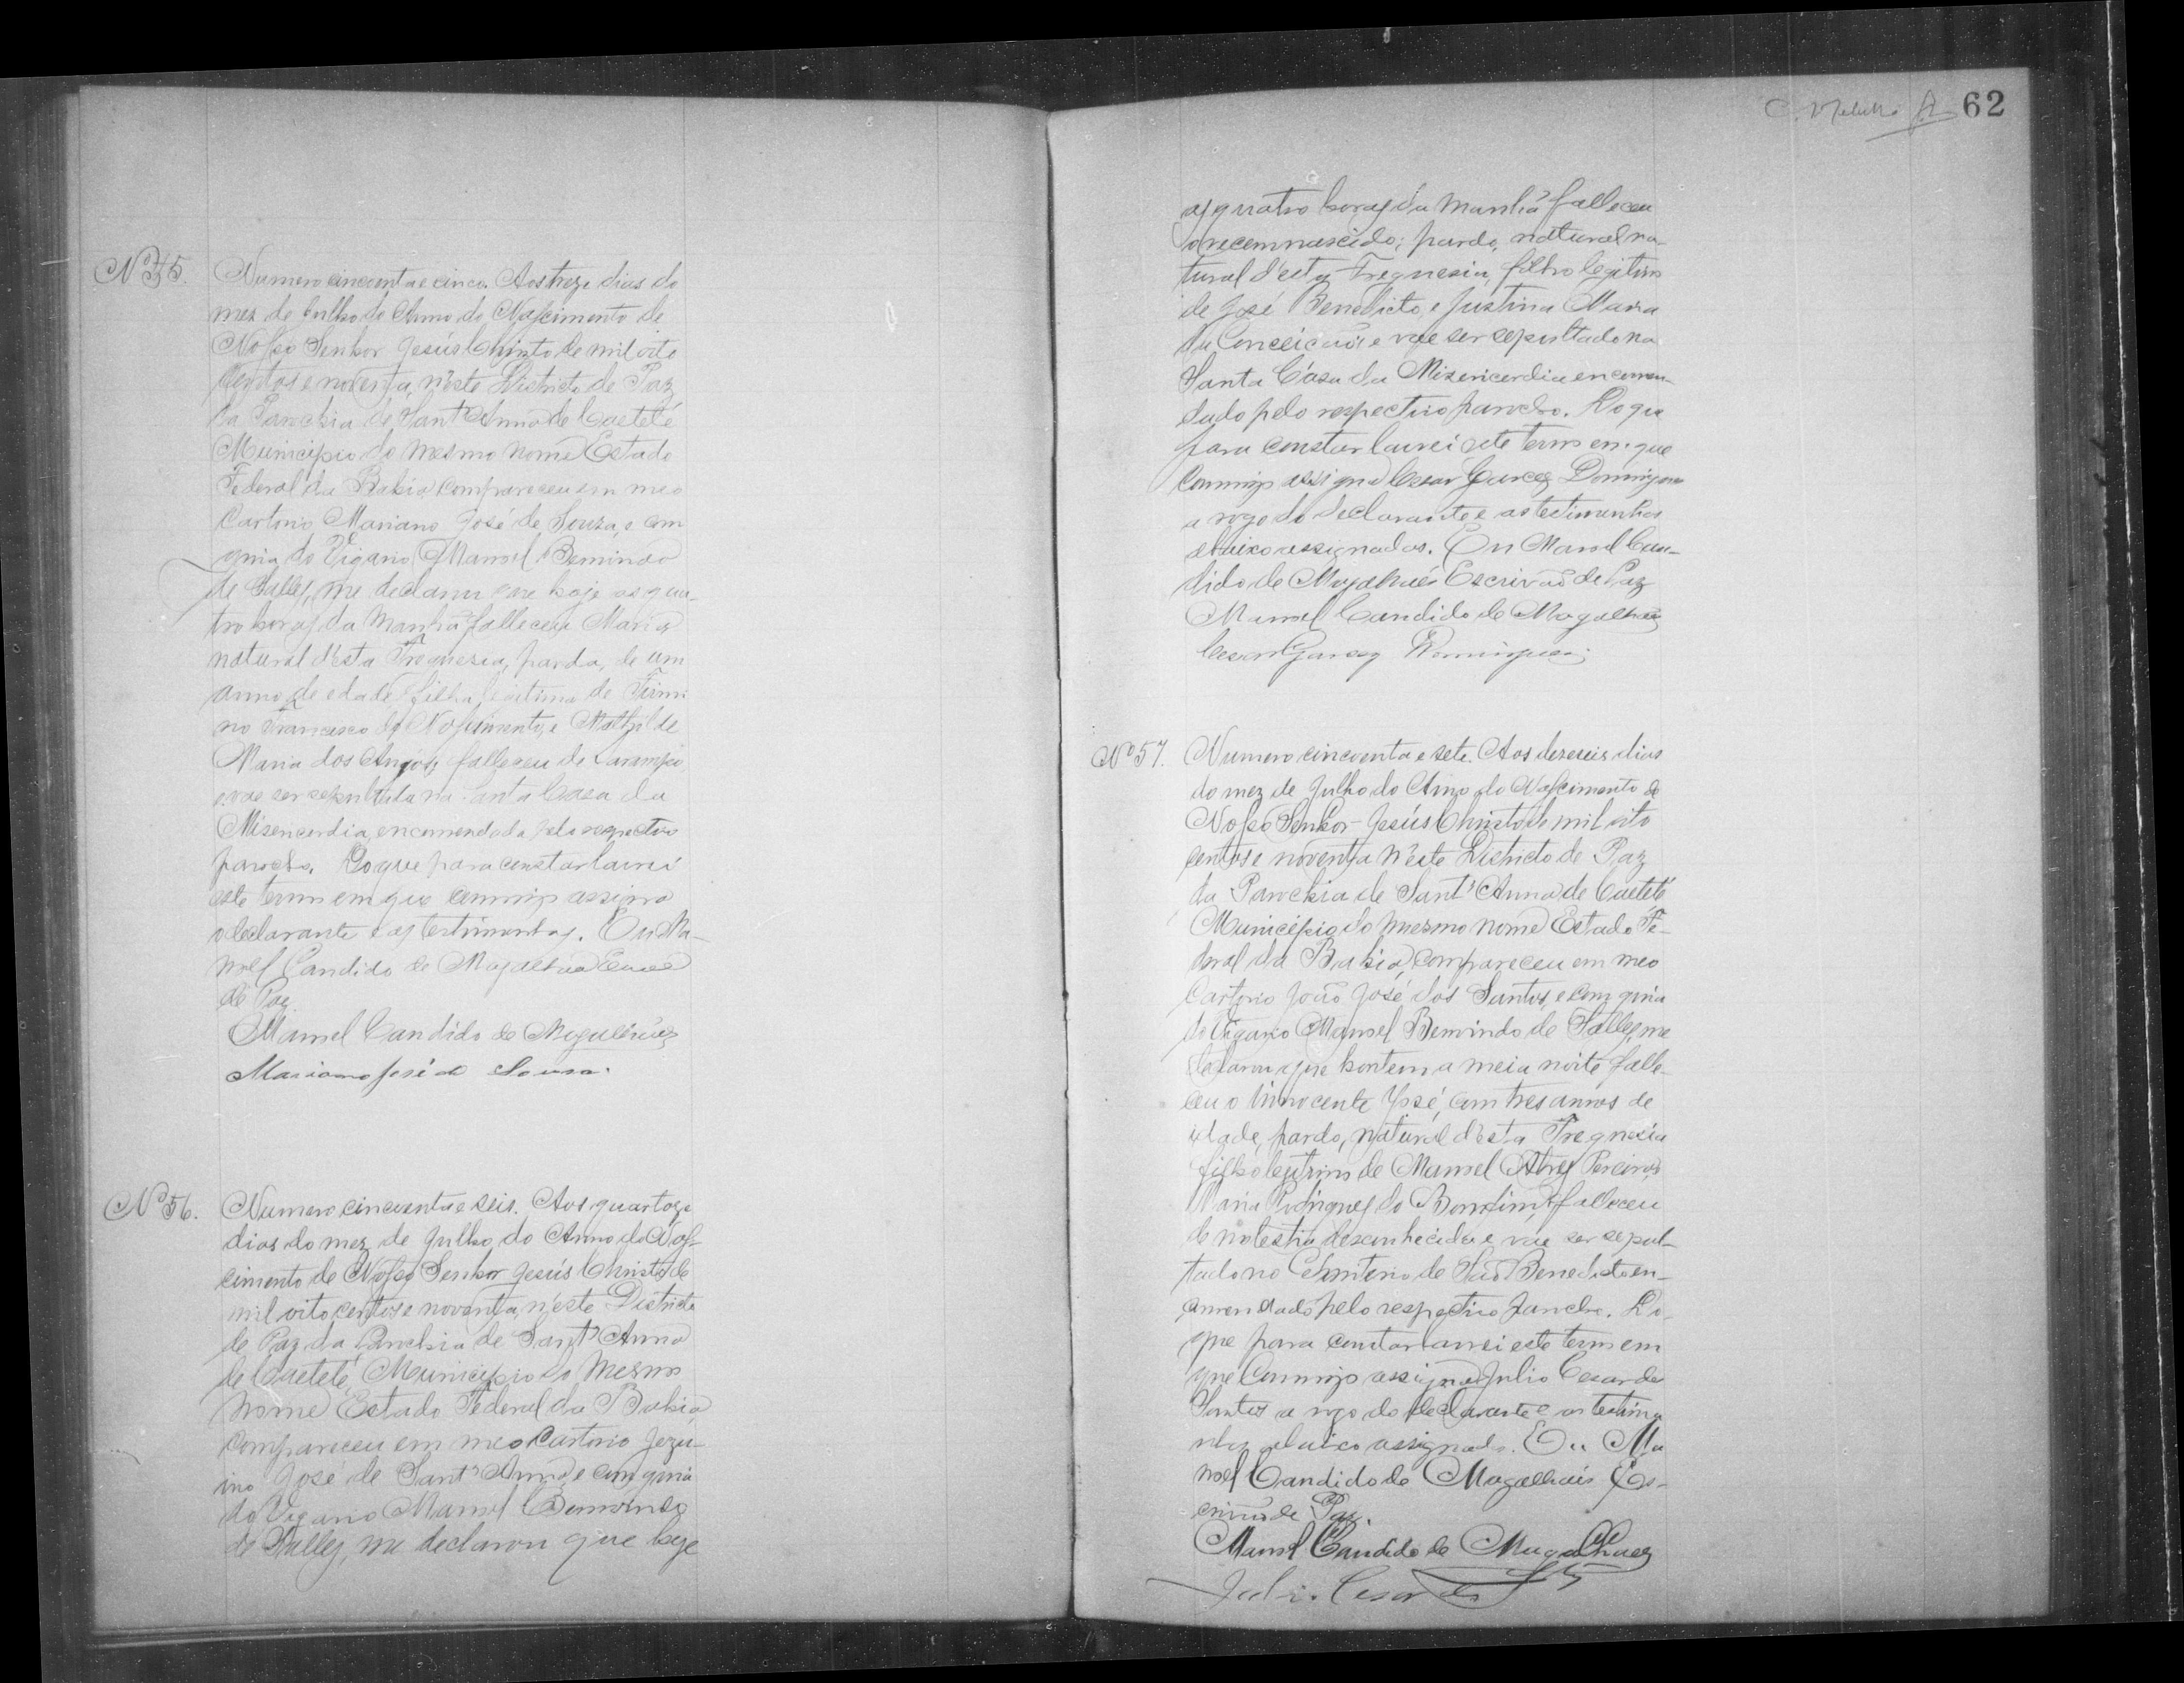 62
Nº 55.
Numero cincoenta e cinco. Aos treze dias do
mez de Julho do Anno do Nascimento de
Nosso Senhor Jesús Christo de mil oito
centos e noventa, n'este Districto de Paz
da Parochia de Sant'Anna de Caeteté
Municipio do mesmo nome Estado
Federal da Bahia compareceu em meo
Cartorio Mariano José de Souza, e com
guia do Vigario Manoel Bemindo
de Salles, me declarou que hoje as qua-
tro horas da manhã falleceu Maria
natural d'esta Freguezia, parda, de um
anno de edade, filha legitima de Firmi
no Francisco do Nascimento, e Mathilde
Maria dos Anjos, falleceu de sarampo
e vae ser sepultada na Santa Casa da
Misericordia, encomendada pelo respectivo
parocho. Do que para constar lavrei
este termo em que commigo assigna
o declarante e as testimunhas. Eu Ma-
noel Candido de Magalhães
de Paz
Manoel Candido de Magalhães
Mariano José de Sousa.
Nº 56.
Numero cincoenta e seis. Aos quartoze
dias do mez de Julho do Anno do Nas-
cimento de Nosso Senhor Jesús Christo de
mil oito centos e noventa, n'este Districto
de Paz da Parochia de Sant'Anna
de Caeteté, Municipio do mesmo
nome Estado Federal da Bahia
compareceu em meo Cartorio Jezu-
ino José de Sant'Anna, e com guia
do Vigario Manoel Bemvindo
de Salles, me declarou que hoje
as quatro horas da manhã falleceu
o recemnascido; pardo, natural na-
tural d'esta Freguesia, filho legitimo
de José Benedicto, e Justina Maria
da Conceicão e vae ser sepultado na
Santa Casa da Misericordia encomen-
dado pelo respectivo parocho. Do que
para constar lavrei este termo em que
commigo assigna Cesar Garcez Domingues
a rogo do declarante e as testimunhas
abaixo assignadas. Eu Manoel Can-
dido de Magalhães Escrivão de Paz
Manoel Candido de Magalhães
Cesar Garcez Domingues
Nº 57.
Numero cincoenta e sete. Aos dezeseis dias
do mez de Julho do Anno do Nascimento de
Nosso Senhor Jesús Christo de mil oito
centos e noventa n'este Districto de Paz
da Parochia de Sant'Anna de Caeteté
Municipio do mesmo nome Estado Fe-
deral da Bahia, compareceu em meo
Cartorio João José dos Santos, e com guia
do Vigario Manoel Bemvindo de Salles, me
declarou que hontem a meia noite falle-
ceu o innocente José, com tres annos de
idade, pardo, natural d'esta Freguezia
filho legitimo de Manoel Alves Pereira,
Maria Rodrigues do Bomfim, falleceu
de molestia desconhecida e vae ser sepul-
tado no Cimiterio de São Benedicto en-
comendado pelo respectivo parocho. Do
que para constar lavrei este termo em
que commigo assigna Julio Cesar de
Santos a rogo do declarante e as testimu
nhas abaixo assignadas. Eu Ma
noel Candido de Magalhães Es-
crivão de Paz.
Manoel Candido de Magalhães
Julio Cesar de